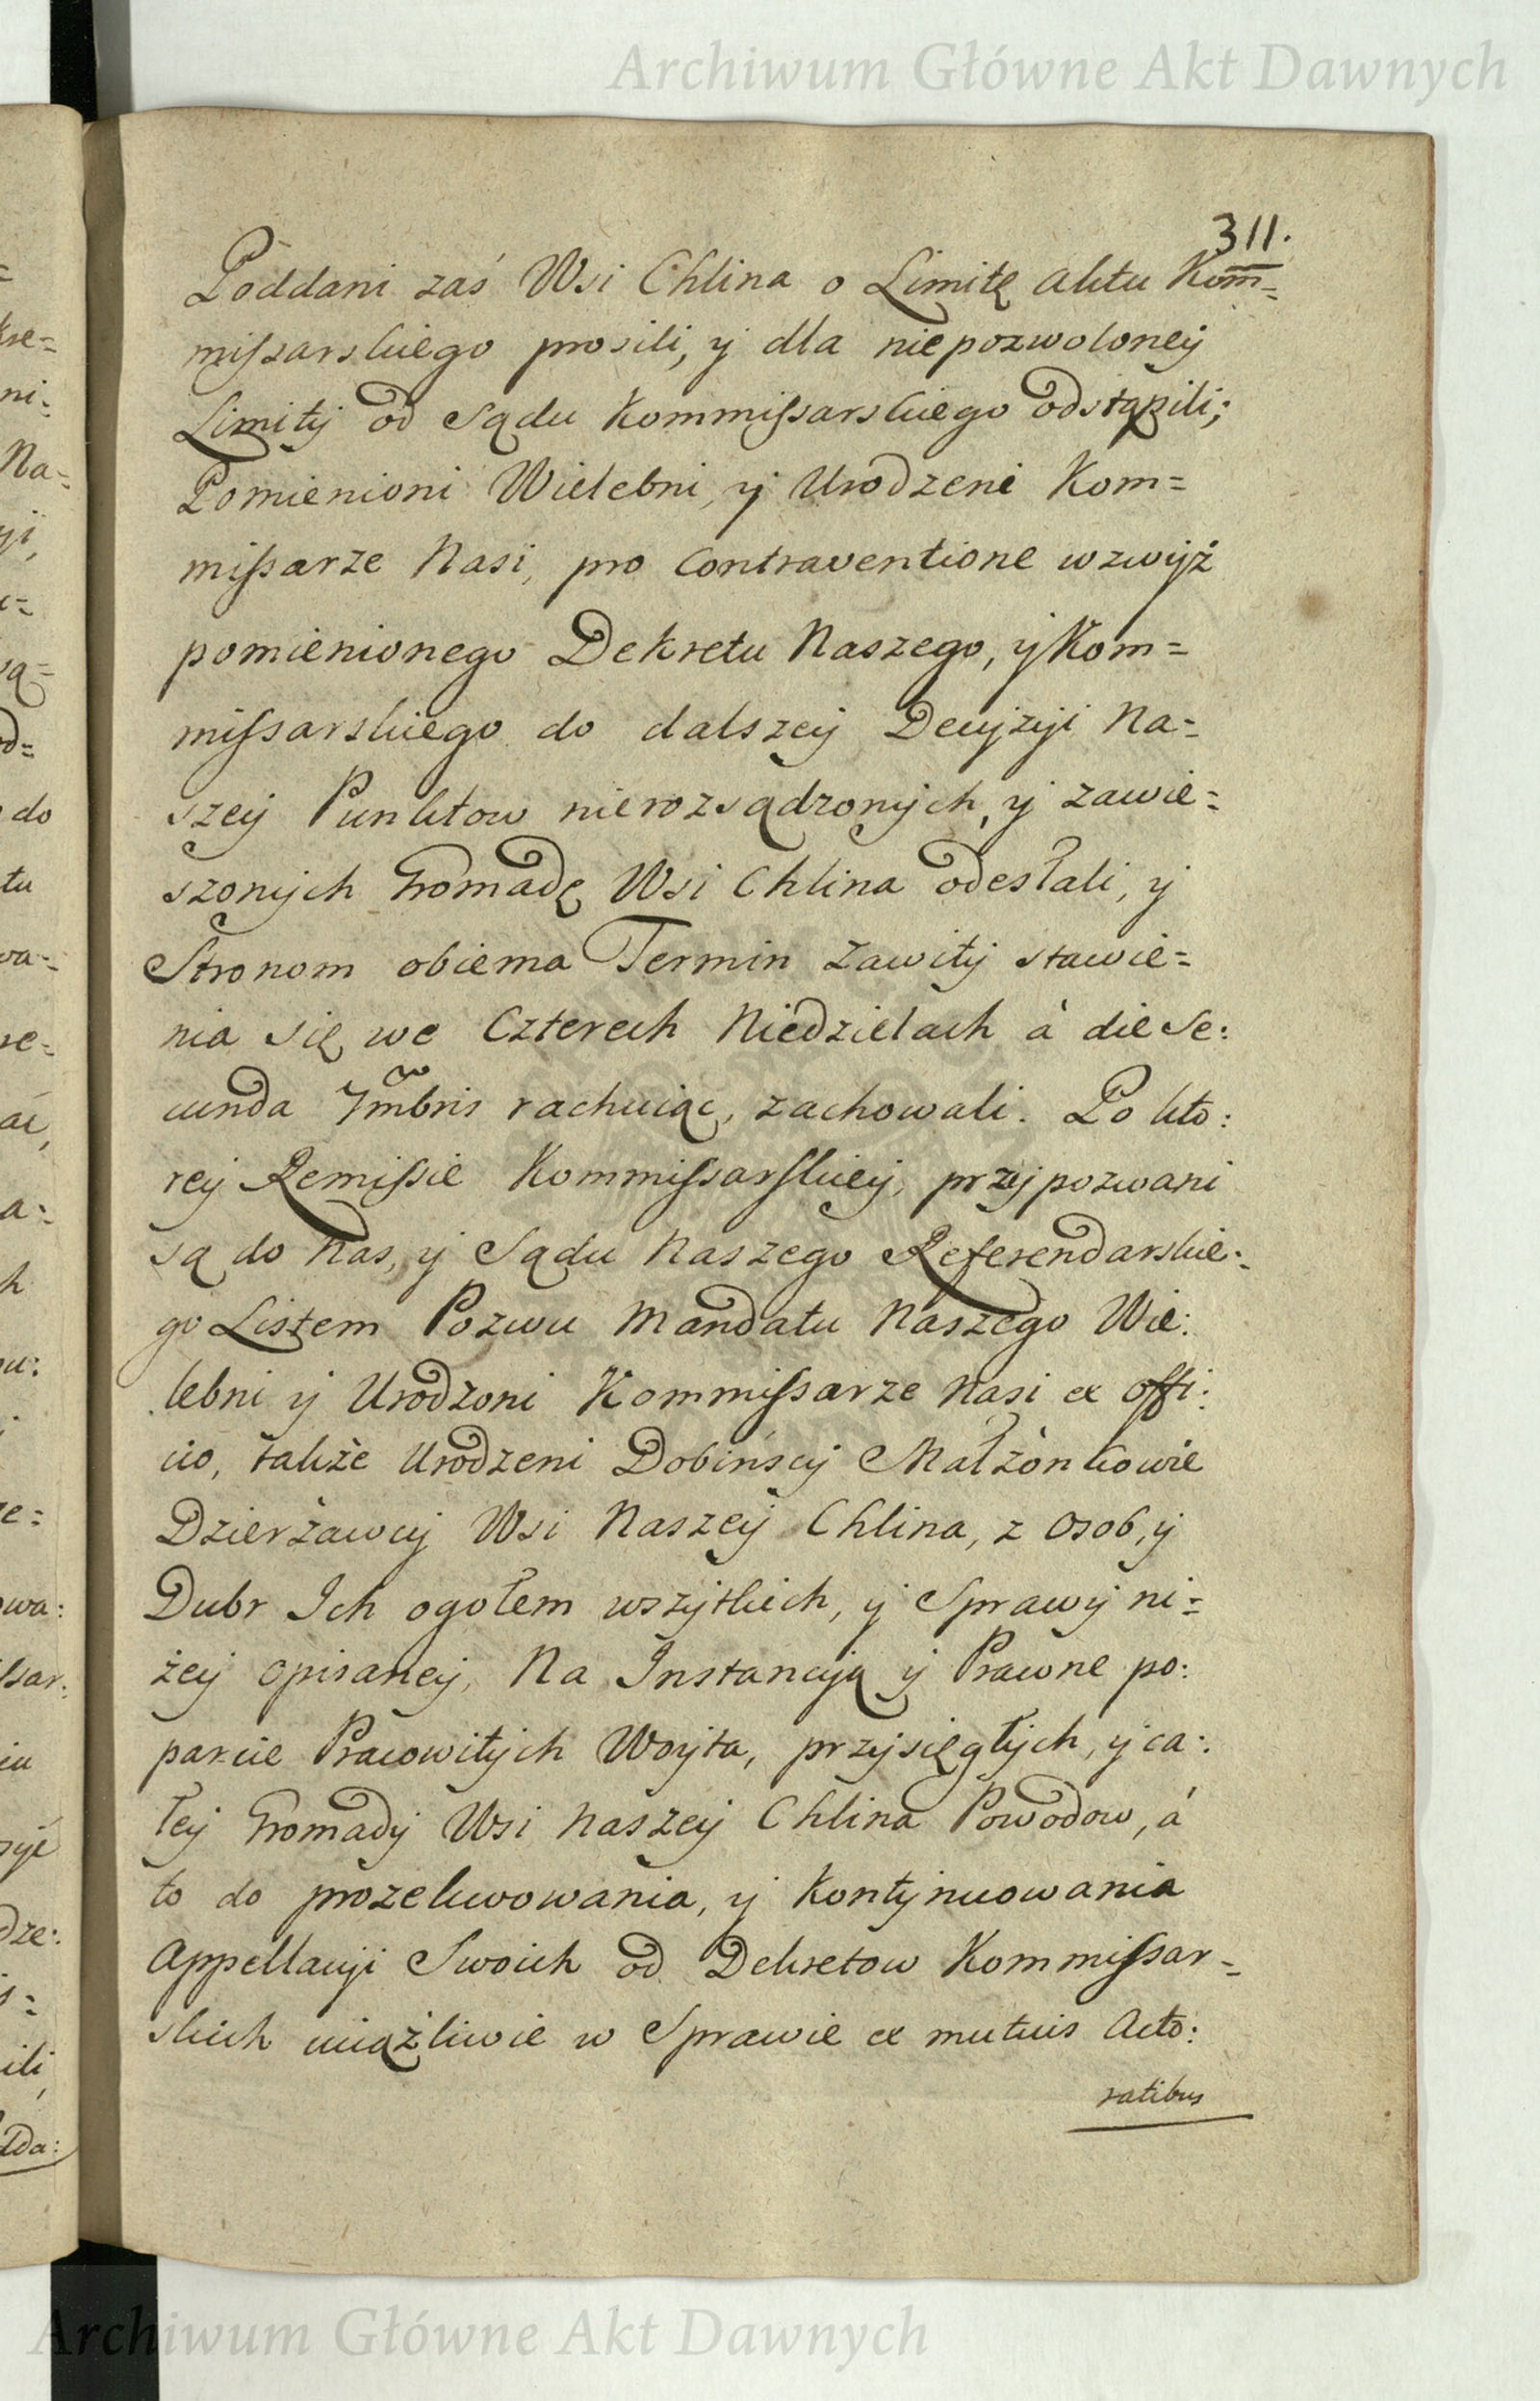 Archiwum Główne Akt Dawnych
311.
Poddani zaś Wsi Chlina o Limitę aktu Kom̅=
mißarskiego prosili, y dla niepozwoloney
Limity od Sądu Kommißarskiego odstąpili;
Pomienioni Wielebni, y Urodzeni Kom=
mißarze Nasi, pro Contraventione wzwyż
pomienionego Dekretu Naszego, y Kom=
mißarskiego do dalszey Decyzyi Na=
szey Punktow nierozsądzonych, y zawie=
szonych Gromadę Wsi Chlina odesłali, y
Stronom obiema Termin Zawity stawie=
nia się we Czterech Niedzielach à die Se:
cunda 7mbris rachuiąc, zachowali. Po kto:
rey Remißie Kommißarskiey, przypozwani
są do Nas, y Sądu Naszego Referendarskie:
go Listem Pozwu Mandatu Naszego Wie:
lebni y Urodzoni Kommißarze Nasi ex offi:
cio, także Urodzeni Dobińscy Małżonkowie
Dzierżawcy Wsi Naszey Chlina, z Osob, y
Dubr Ich ogołem wszystkich, y Sprawy ni=
żey opisaney, Na Instancyą y Prawne po:
parcie Pracowitych Woyta, przysięgłych, y ca:
łey Gromady Wsi Naszey Chlina Powodow, á
to do prozekwowania, y kontynuowania
Appellacyi Swoich od Dekretow Kommißar=
skich uciążliwie w Sprawie ex mutuis Acto:
ratibus
kse=
ni:
Na=
do
tu
wa=
h
wa:
dze:
ili
Archiwum Główne Akt Dawnych